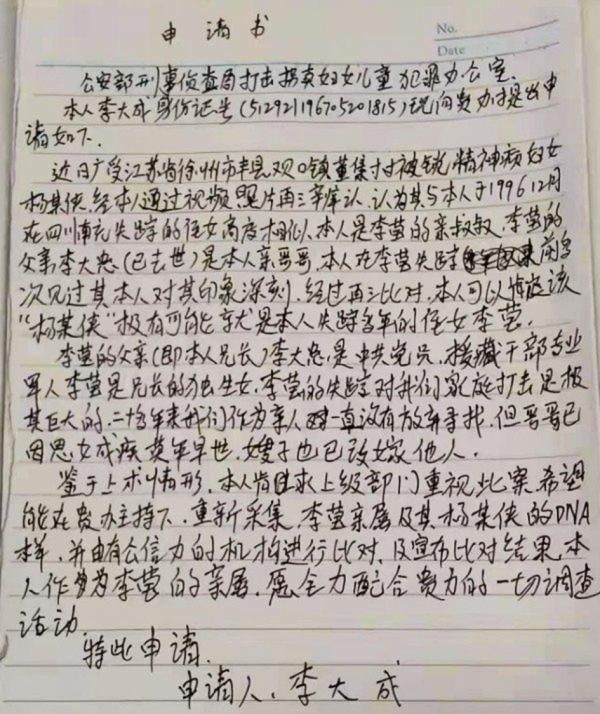 申请书
No.
Date
公安部刑事侦查局打击拐卖妇女儿童犯罪办公室.
本人李大成身份证号(512921196705201815)现向贵办提出申
请如下.
近日广受江苏省徐州市丰县观口镇董集村被锁精神病妇女
杨某侠.经本人通过视频照片再三辨认.认为其与本人于1996 12月
在四川南充失踪的侄女高度相似.本人是李莹的亲叔叔.李莹的
父亲李大忠(已去世)是本人亲哥哥.本人在李莹失踪前多
次见过其本人对其印象深刻.经过再三比对.本人可以该
"杨某侠"极有可能就是本人失踪多年的侄女李莹.
李莹的父亲(即本人兄长)李大忠.是中共党员.援藏干部专业
军人李莹是兄长的独生女.李莹的失踪对我们家庭打击是极
其巨大的.二十多年来我们作为亲人一直没有放弃寻找.但哥哥已
因思女成疾英年早世.嫂子也已改嫁他人.
鉴于上术情形.本人肯求上级部门重视此案.希望
能在贵办主持下.重新采集.李莹亲属及其杨某侠的DNA
样.并由有公信力的机构进行比对.及宣布比对结果.本
人作为李莹的亲属.愿全力配合贵方的一切调查
活动.
特此申请.
申请人:李大成